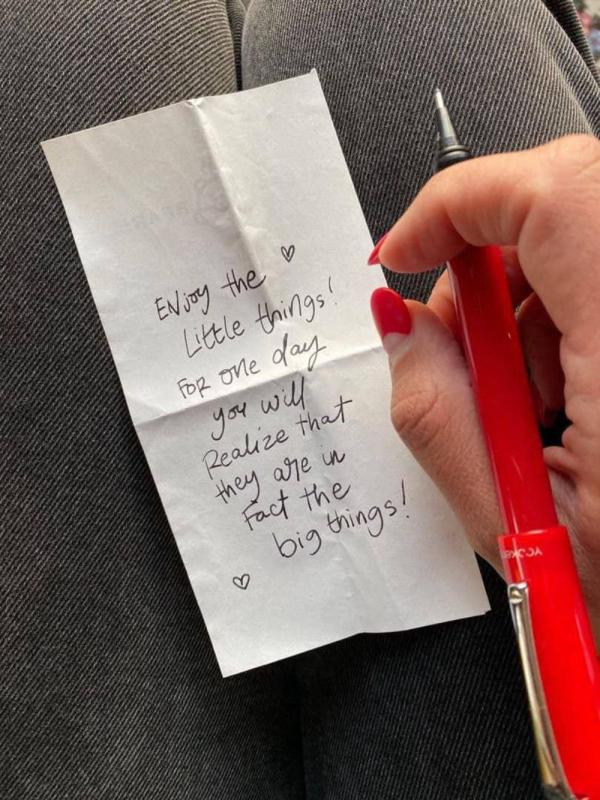 ENjoy the ♡
Little things!
FOR one day
you will
Realize that
they are in
Fact the
big things!
♡